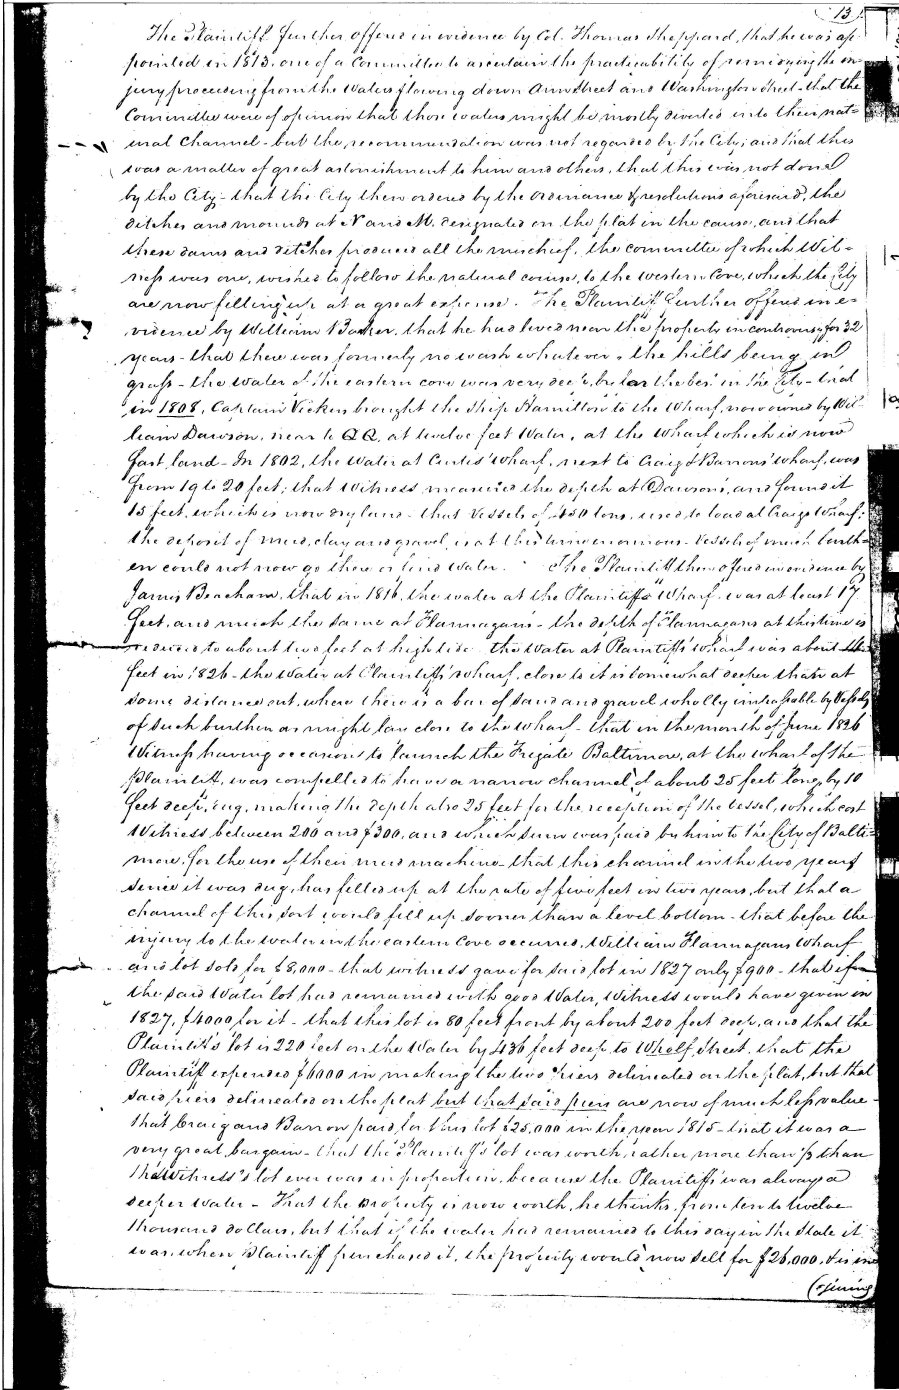 13
The Plaintiff further offered in evidence by Col. Thomas Sheppard, that he was ap-
pointed in 1813. one of a Committee to ascertain the practicability of remidying the in-
jury proceeding from the Waters flowing down Ann Street and Washington Street - that the
Committee were of opinion that those waters might be mostly diverted into their nat=
ural Channel - but the recommendation was not regarded by the City; and that this
was a matter of great astonishment to him and others, that this was not done
by the City - that the City then ordered by the Ordinance & resolutions aforesaid, the
ditches and mounds at N and M. designated on the plat in the cause, and that
these dams and ditches produced all the mischief, the committee of which Wit=
ness was one, wished to follow the natural course, to the western Cove, which the City
are now filling up at a great expense. The Plaintiff further offered in e=
vidence by William Barker, that he had lived near the property in controversy for 32
years - that there was formerly no wash whatever, the hills being in
grass - the water of the eastern cove was very deep, by far the best in the City - that
in 1808, Captain Vickers brought the Ship Hamilton to the Wharf, now owned by Wil-
liam Dawson, near to QQ, at twelve feet Water, at the wharf which is now
fast land - In 1802, the Water at Curtis' Wharf, next to Craig & Barrons' Wharf, was
from 19 to 20 feet; that Witness measured the depth at Dawson's, and found it
15 feet, which is now dry land - that Vessels of 450 tons, used to load at Craigs Wharf;
the deposit of mud, clay and gravel, is at this time enormous - Vessels of much burth=
en could not now go there or find water. The Plaintiff then offered in evidence by
James Beacham, that in 1816, the water at the Plaintiffs Wharf was at least 17
feet, and much the same at Flannagan's - the depth of Flannagans at this time is
reduced to about two feet at high tide the Water at Plaintiff's wharf was about 14
feet in 1826 - the Water at Plaintiff's wharf, close to it is somewhat deeper than at
some distance out, where there is a bar of sand and gravel wholly impassable by Vessels
of such burthen as might lay close to the wharf - that in the month of June 1826
Witness having occasion to launch the Frigate Baltimore, at the wharf of the
Plaintiff, was compelled to have a narrow channel, of about 25 feet long, by 10
feet deep, dug, making the depth also 25 feet for the reception of the vessel, which cost
Witness between 200 and $300, and which sum was paid by him to the City of Balti=
more, for the use of their mud machine - that this channel in the two years
since it was dug, has filled up at the rate of five feet in two years, but that a
channel of this sort would fill up sooner than a level bottom - that before the
injury to the water in the eastern Cove occurred, William Flannagans Wharf
and lot sold for $8,000 - that witness gave for said lot in 1827 only $900 - that if
the said Water lot had remained with good Water, Witness would have given in
1827, $4000 for it - that this lot is 80 feet front by about 200 feet deep, and that the
Plaintiff's lot is 220 feet on the Water by 436 feet deep to Wholf Street, that the
Plaintiff expended $6000 in making the two piers delineated on the plat, but that
said piers delineated on the plat but that said piers are now of much less value -
that Craig and Barron paid for this lot $25,000 in the year 1815 - that it was a
very great bargain - that the Plaintiff's lot was worth, rather more than than
the Witness's lot ever was in proportion, because the Plaintiff's was always a
deeper water - That the property is now worth, he thinks, from ten to twelve
thousand dollars, but that if the water had remained to this day in the State it
was, when Plaintiff purchased it, the property would now sell for $26,000, & is in